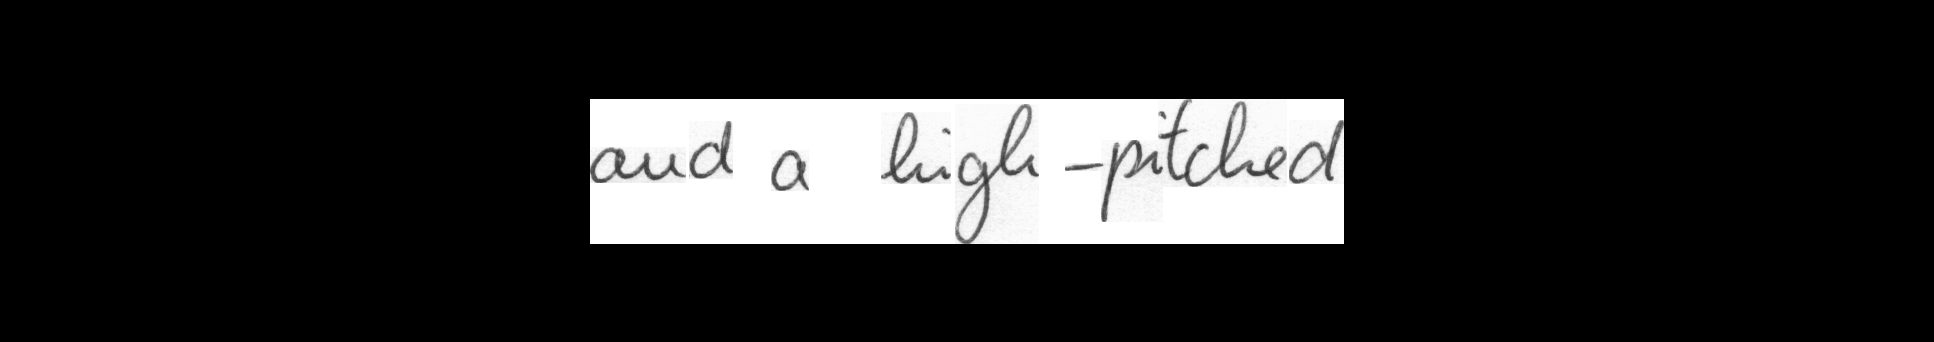 and a high-pitched